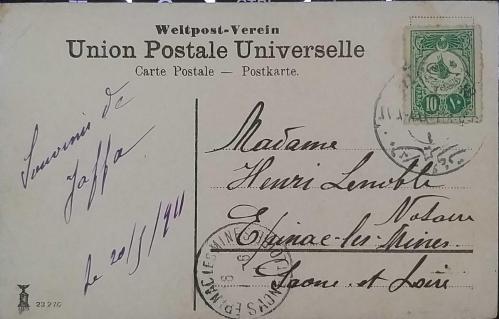 Weltpost-Verein
Union Postale Universelle
Carte Postale — Postkarte.
Souvenir de
Jaffa
le 20/5/1911
Madame
Henri Lenoble
Notaire
Epinac-les-Mines
Saone et Loire
10 ١٠
EPINAC LES MINES
23270